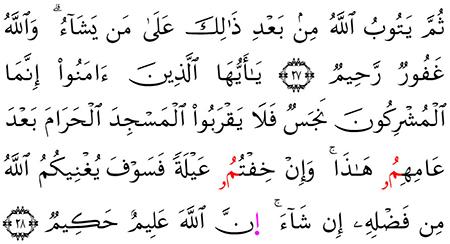 ثُمَّ يَتُوبُ ٱللَّهُ مِنۢ بَعْدِ ذَٰلِكَ عَلَىٰ مَن يَشَآءُ ۗ وَٱللَّهُ
غَفُورٌ رَّحِيمٌ ٢٧ يَـٰٓأَيُّهَا ٱلَّذِينَ ءَامَنُوٓا۟ إِنَّمَا
ٱلْمُشْرِكُونَ نَجَسٌ فَلَا يَقْرَبُوا۟ ٱلْمَسْجِدَ ٱلْحَرَامَ بَعْدَ
عَامِهِمُۥ هَـٰذَا ۚ وَإِنْ خِفْتُمُۥ عَيْلَةً فَسَوْفَ يُغْنِيكُمُ ٱللَّهُ
مِن فَضْلِهِۦٓ إِن شَآءَ ۚ إِنَّ ٱللَّهَ عَلِيمٌ حَكِيمٌ ٢٨